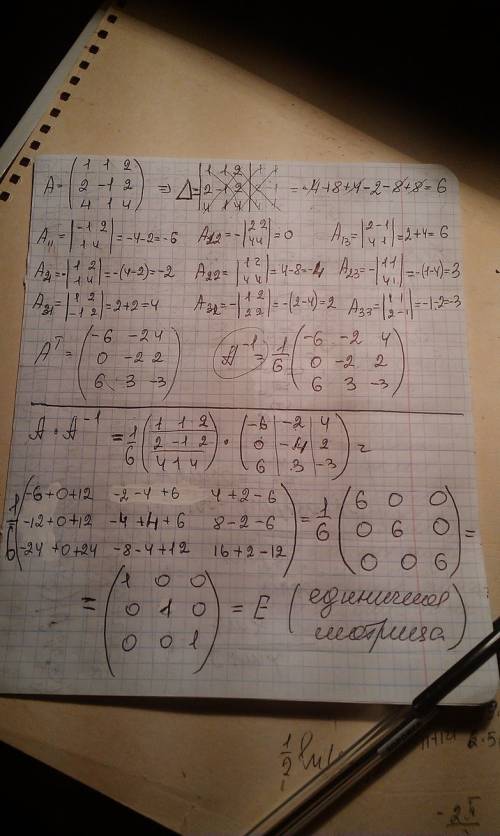 A = (1 1 2; 2 -1 2; 4 1 4) ⇒ Δ = |1 1 2; 2 -1 2; 4 1 4| = -4+8+4-2-8+8=6
A₁₁ = |-1 2; 1 4| = -4-2=-6 A₁₂ = -|2 2; 4 4| = 0 A₁₃ = |2 -1; 4 1| = 2+4=6
A₂₁ = -|1 2; 1 4| = -(4-2)=-2 A₂₂ = |1 2; 4 4| = 4-8=-4 A₂₃ = -|1 1; 4 1| = -(1-4)=3
A₃₁ = |1 2; -1 2| = 2+2=4 A₃₂ = -|1 2; 2 2| = -(2-4)=2 A₃₃ = |1 1; 2 -1| = -1-2=-3
Aᵀ = (-6 -2 4; 0 -2 2; 6 3 -3) A⁻¹ = 1/6 (-6 -2 4; 0 -2 2; 6 3 -3)
A · A⁻¹ = 1/6 (1 1 2; 2 -1 2; 4 1 4) · (-6 -2 4; 0 -4 2; 6 3 -3) =
1/6 (-6+0+12 -2-4+6 4+2-6; -12+0+12 -4+4+6 8-2-6; -24+0+24 -8-4+12 16+2-12) = 1/6 (6 0 0; 0 6 0; 0 0 6) =
= (1 0 0; 0 1 0; 0 0 1) = E (единичная
матрица)